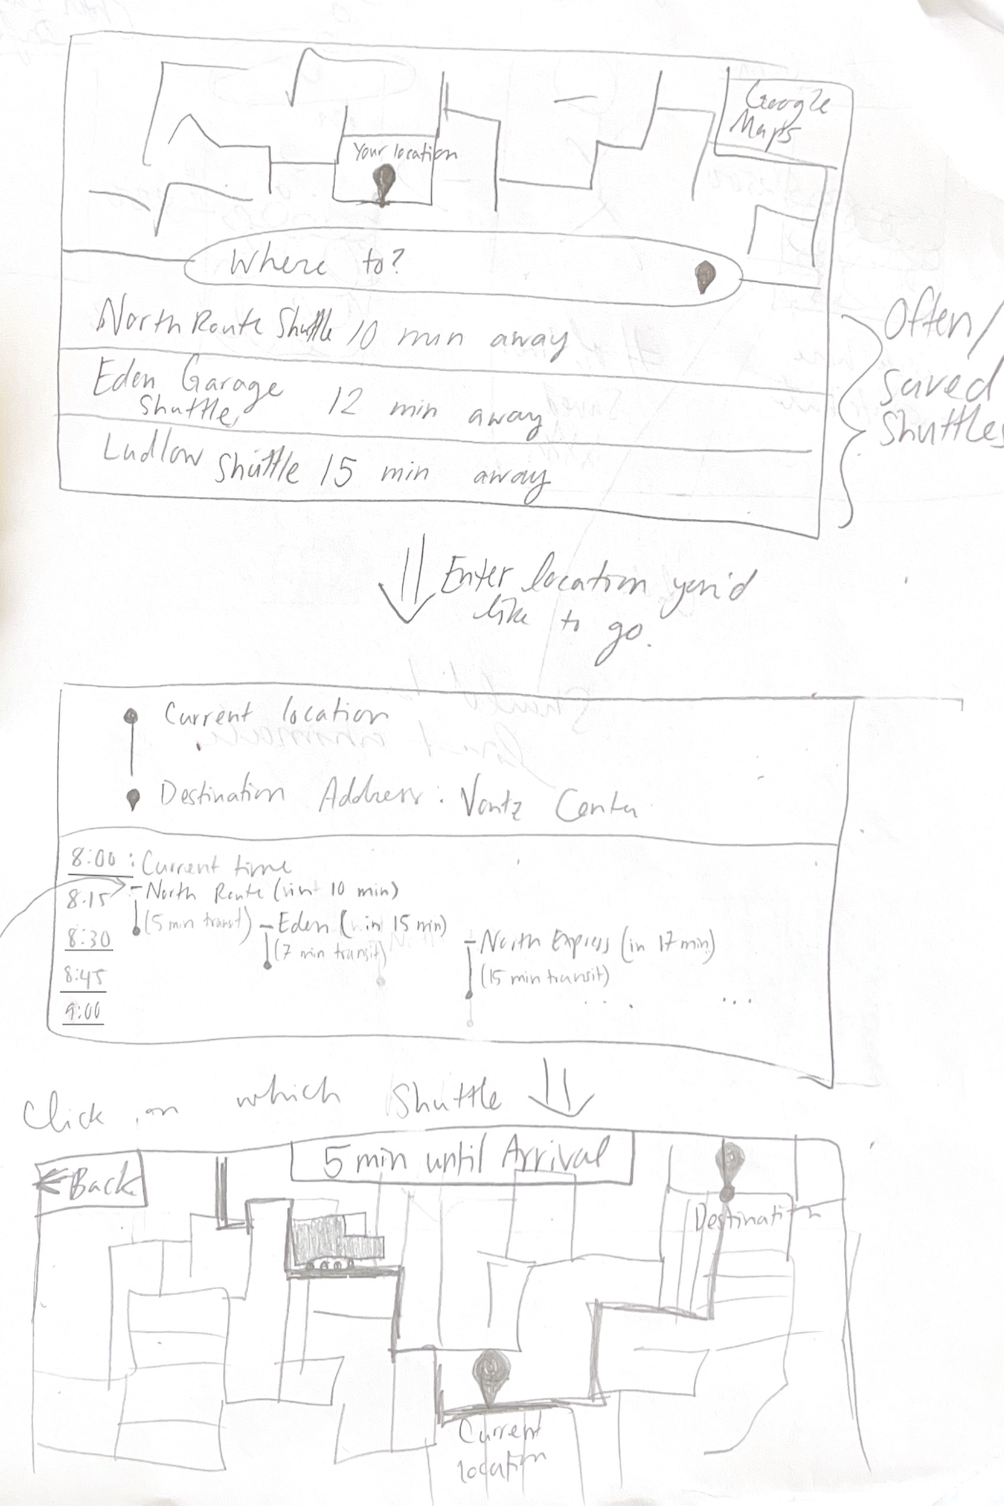 Google
Maps
Your location
Where to?
North Route Shuttle 10 min away
Eden Garage
Shuttle, 12 min away
Ludlow Shuttle 15 min away
Often/
saved
shuttles
Enter location you'd
like to go.
Current location
Destination Address: Vontz Center
8:00 : Current time
8:15 North Route (in 10 min)
(5 min transit)
Eden (in 15 min)
8:30
(7 min transit)
North Express (in 17 min)
8:45
(15 min transit)
... ...
9:00
Click on which Shuttle
5 min until Arrival
Back
Destination
Current
location